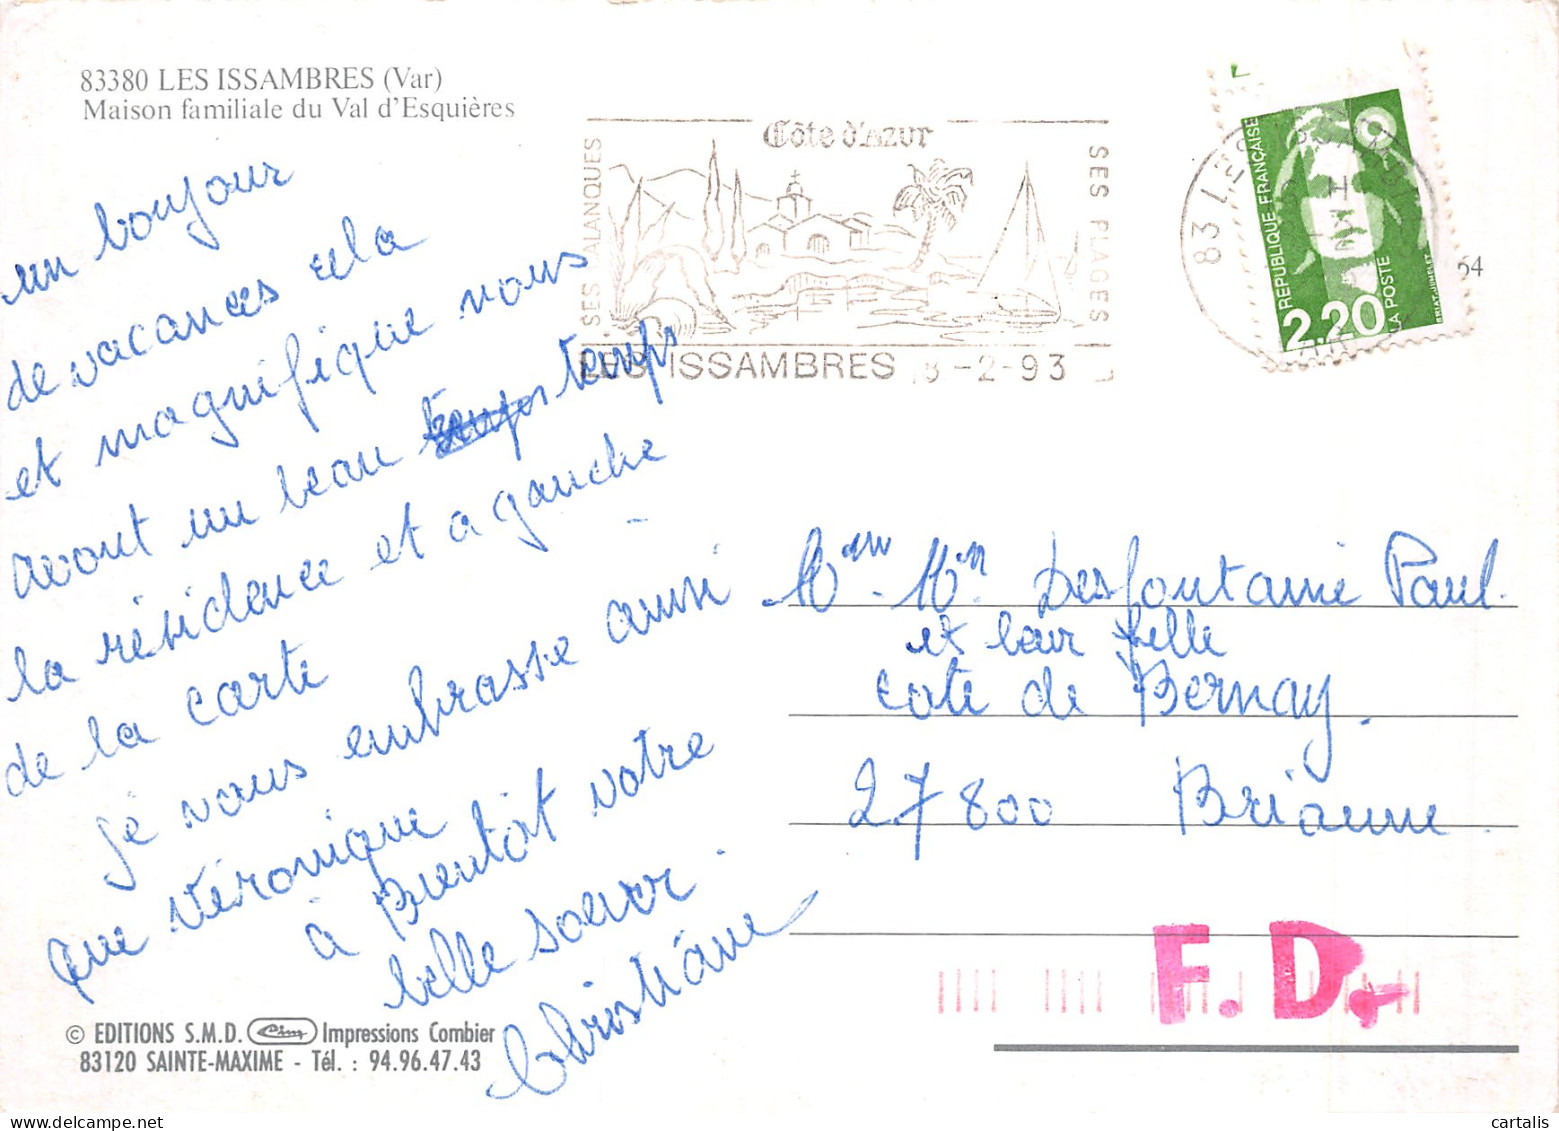 83380 LES ISSAMBRES (Var)
Maison familiale du Val d'Esquières
un bonjour
de vacances cela
et magnifique nous
avont un beau temps
la résidence et a gauche
de la carte
je vous embrasse aussi
que Véronique
à Bientôt votre
belle soeur
Christiane
© EDITIONS S.M.D. Cim Impressions Combier
83120 SAINTE-MAXIME - Tél. : 94.96.47.43
SES CALANQUES
Côte d'Azur
SES PLAGES
LES ISSAMBRES 8-2-93
83 LES ISSAMBRES
VAR
RÉPUBLIQUE FRANÇAISE
2,20
LA POSTE
BRIAT-JUMELET
64
Mme. Mr Desfontaine Paul.
et leur fille
cote de Bernay.
27800 Brionne.
F. D.
cartalis